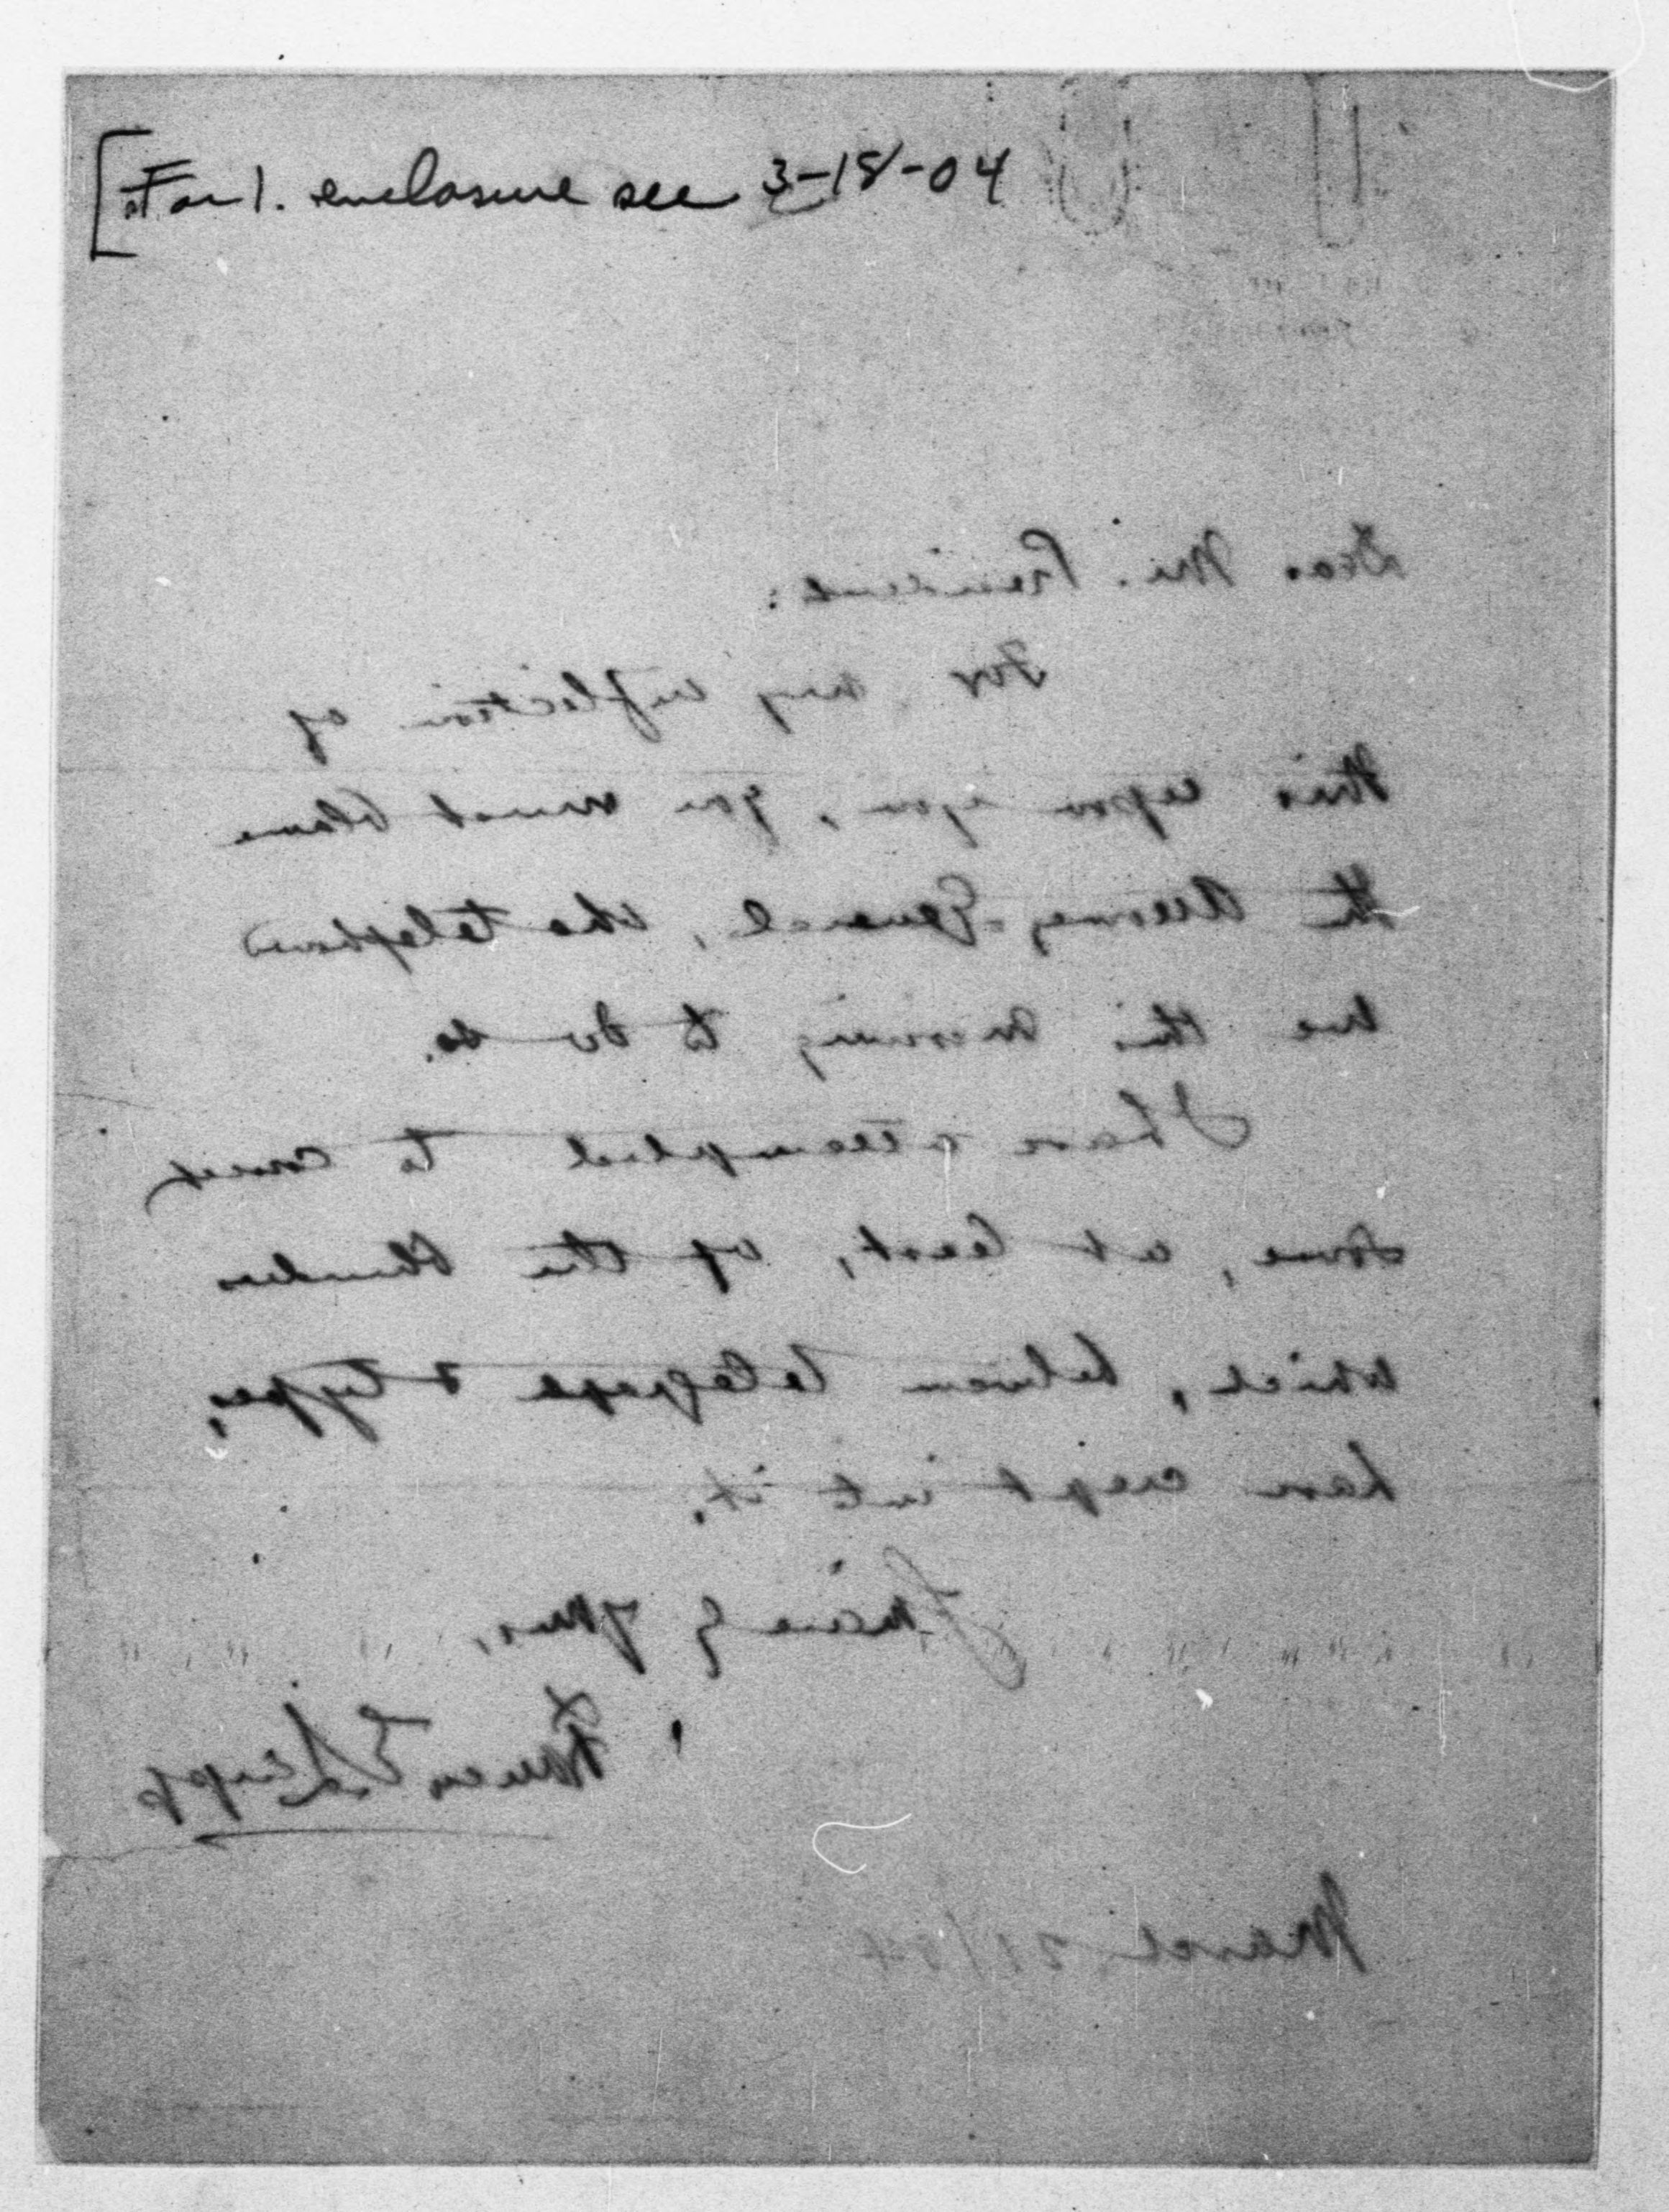 [For 1. enclosure see 3-18-04
Dear Mr. President:
For my infliction of
this upon you, you must blame
the Attorney-General, who telephoned
me this morning to do so.
I have attempted to correct
some, at least, of the blunders
which, between telegraph & types,
have crept into it.
Sincerely yours,
Francis E. Leupp
March 21/04